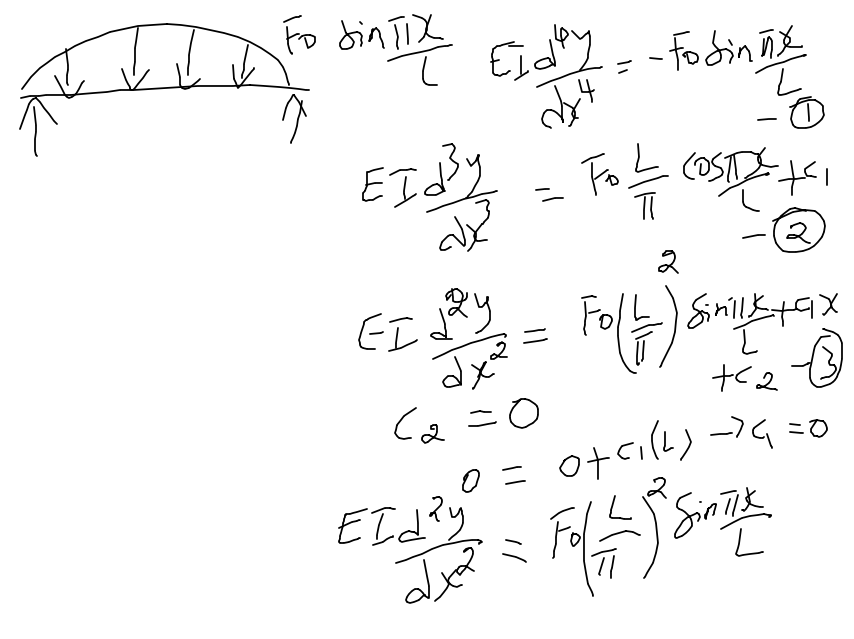 F0 sin πx/L
EI d⁴y/dx⁴ = -F0 sin πx/L
- ①
EI d³y/dx³ = F0 L/π cos πx/L + c1
- ②
EI d²y/dx² = F0 (L/π)² sin πx/L + c1x
+ c2 - ③
c2 = 0
0 = 0 + c1(L) → c1 = 0
EI d²y/dx² = F0 (L/π)² sin πx/L